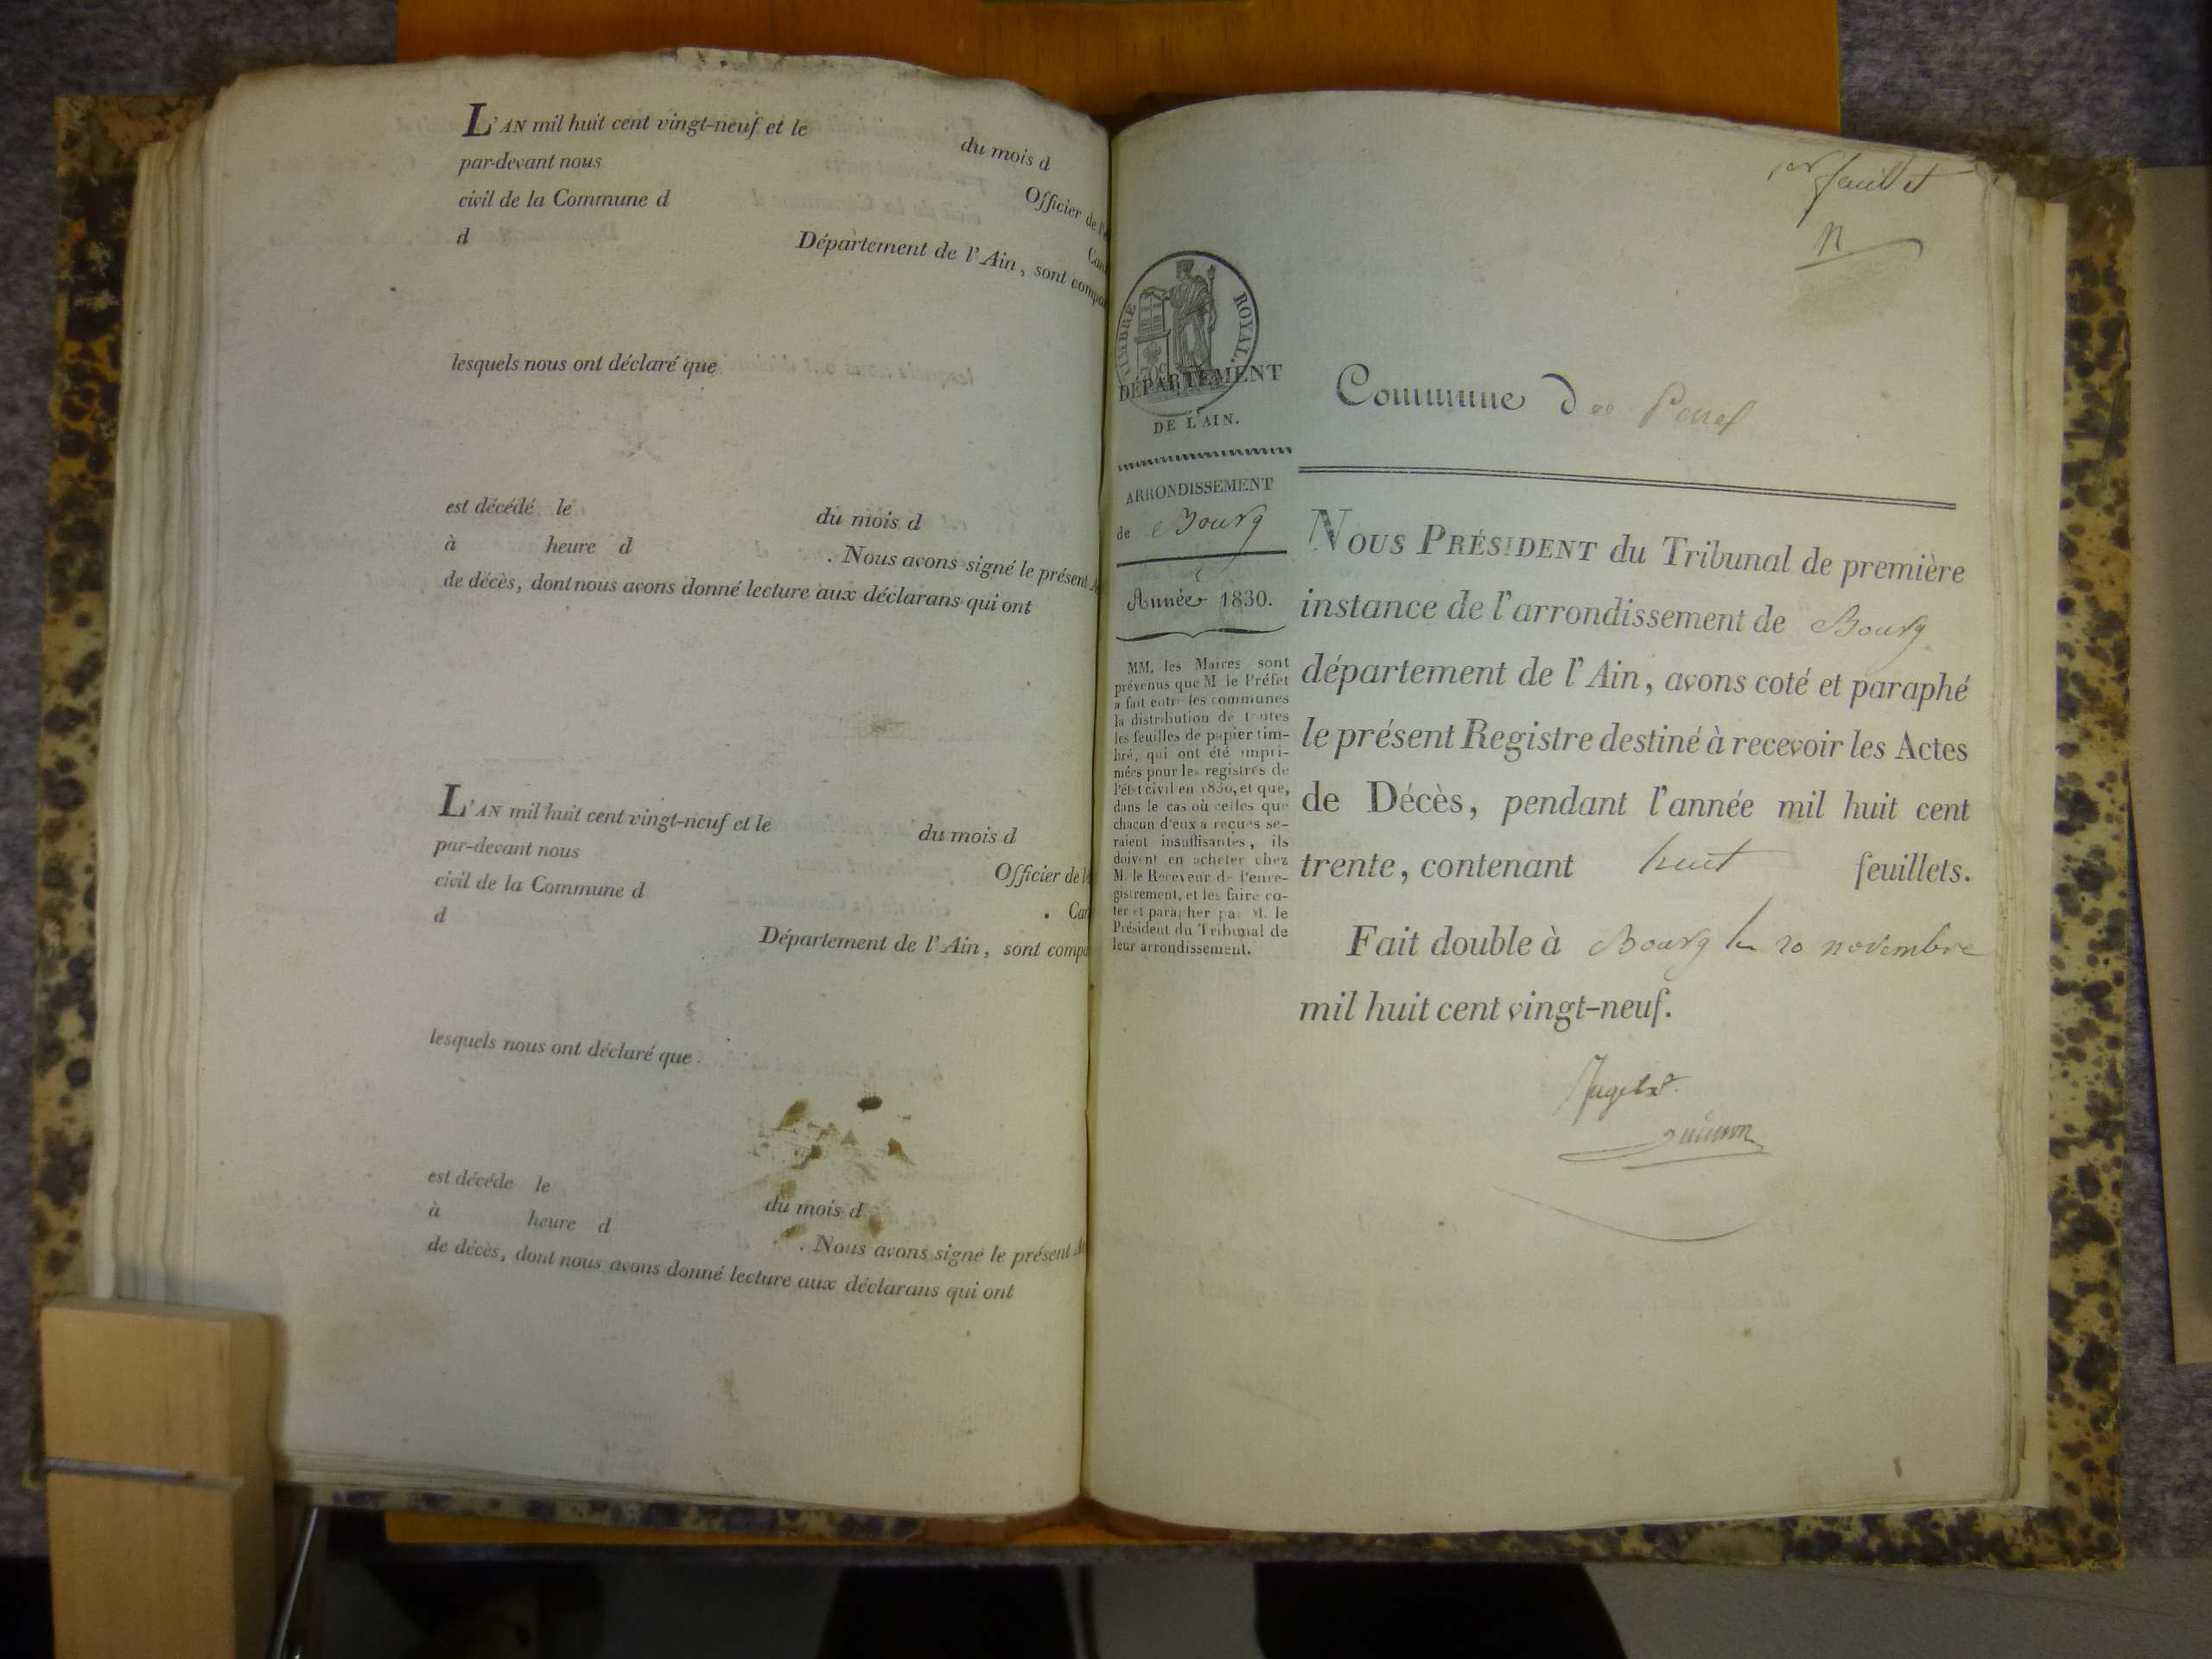 L'AN mil huit cent vingt-neuf et le du mois d
par-devant nous Officier de l'é
civil de la Commune d Can
d Département de l'Ain, sont compa
lesquels nous ont déclaré que
est décédé le du mois d
à heure d . Nous avons signé le présent
de décès, dont nous avons donné lecture aux déclarans qui ont
L'AN mil huit cent vingt-neuf et le du mois d
par-devant nous Officier de l
civil de la Commune d Can
d Département de l'Ain, sont compa
lesquels nous ont déclaré que
est décéde le du mois d
à heure d . Nous avons signé le présent
de décès, dont nous avons donné lecture aux déclarans qui ont
1er feuillet
TIMBRE ROYAL.
DÉPARTEMENT
DE L'AIN.
ARRONDISSEMENT
de Bourg
Année 1830.
MM. les Maires sont
prévenus que M. le Préfet
a fait entre les communes
la distribution de toutes
les feuilles de papier tim-
bré, qui ont été impri-
mées pour les registres de
l'état civil en 1830, et que,
dans le cas où celles que
chacun d'eux a reçues se-
raient insuffisantes, ils
doivent en acheter chez
M. le Receveur de l'enre-
gistrement, et les faire co-
ter et parapher par M. le
Président du Tribunal de
leur arrondissement.
Commune de
NOUS PRÉSIDENT du Tribunal de première
instance de l'arrondissement de Bourg
département de l'Ain, avons coté et paraphé
le présent Registre destiné à recevoir les Actes
de Décès, pendant l'année mil huit cent
trente, contenant huit feuillets.
Fait double à Bourg le 20 novembre
mil huit cent vingt-neuf.